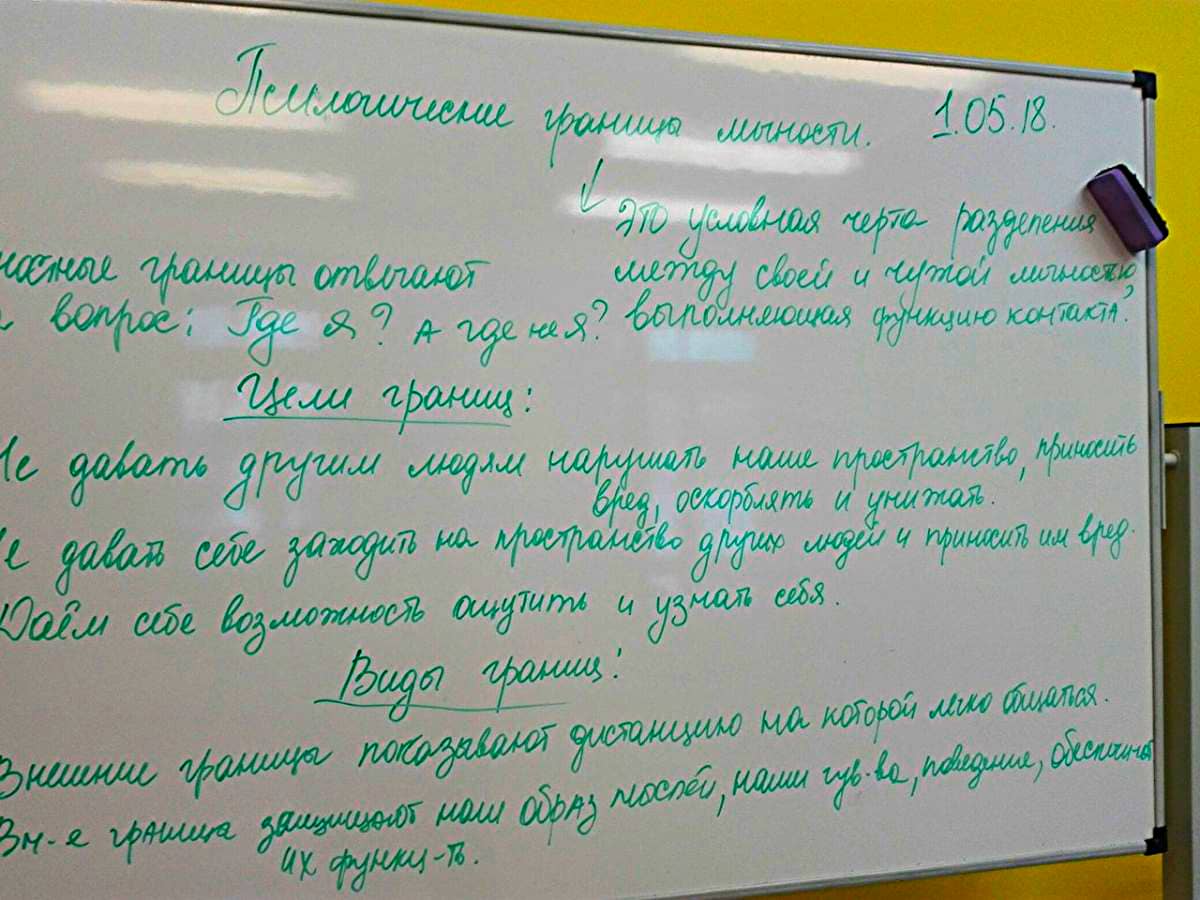 Психологические границы личности. 1.05.18.
это условная черта разделения
между своей и чужой личностью,
выполняющая функцию контакта.
ностные границы отвечают
вопрос: Где я? А где не я?
Цели границ:
Не давать другим людям нарушать наше пространство, приносить
вред, оскорблять и унижать.
Не давать себе заходить на пространство других людей и приносить им вред.
Даём себе возможность ощутить и узнать себя.
Виды границ:
Внешние границы показывают дистанцию на которой легко общаться.
Вн-е граница защищают наш образ мыслей, наши чув-ва, поведение, обеспечивают
их функц-ть.